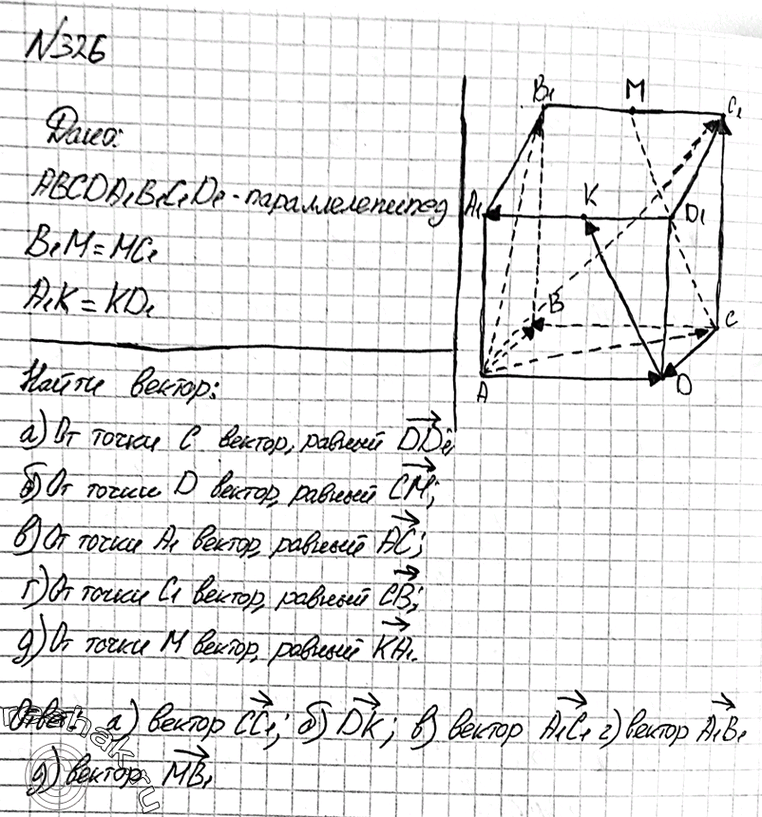 N326
Дано:
ABCDA₁B₁C₁D₁ - параллелепипед
B₁M = MC₁
A₁K = KD₁
Найти вектор:
а) От точки C вектор, равный DD₁;
б) От точки D вектор, равный CM;
в) От точки A₁ вектор, равный AC;
г) От точки C₁ вектор, равный CB;
д) От точки M вектор, равный KA₁.
Ответ: а) вектор CC₁; б) DK; в) вектор A₁C₁ г) вектор A₁B₁
д) вектор MB₁
B₁ M C₁
A₁ K D₁
B C
A D